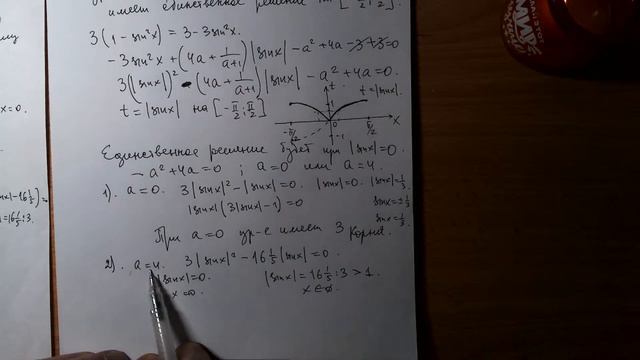 имеет единственное решение на [-π/2; π/2].
3(1 - sin²x) = 3 - 3sin²x.
- 3sin²x + (4a + 1/(a+1)) |sinx| - a² + 4a - 3 + 3 = 0
3(|sinx|)² - (4a + 1/(a+1)) |sinx| - a² + 4a = 0.
t = |sinx| на [-π/2; π/2]
t
t = |sinx|.
1
0
-π/2
π/2
x
-1
Единственное решение будет при |sinx| = 0.
- a² + 4a = 0 ; a = 0 или a = 4.
1). a = 0. 3|sinx|² - |sinx| = 0. |sinx| = 0. |sinx| = 1/3.
|sinx| (3|sinx| - 1) = 0
sinx = ± 1/3
sinx = 1/3.
При a = 0 ур-е имеет 3 корня.
2). a = 4. 3|sinx|² - 16 1/5 |sinx| = 0.
|sinx| = 0. |sinx| = 16 1/5 : 3 > 1.
x = 0. x ∈ ø.
x = 0.
|x| - 16 1/5) =
= 16 1/5 : 3.